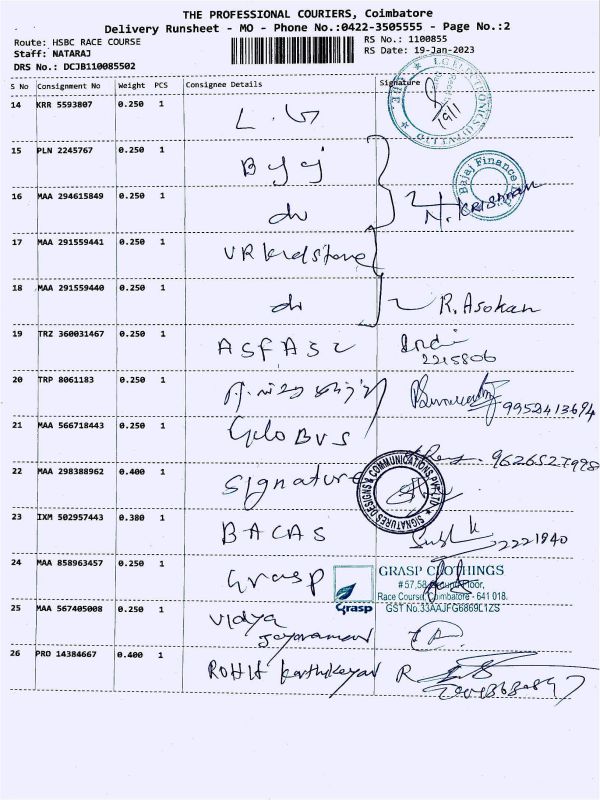 THE PROFESSIONAL COURIERS, Coimbatore
Delivery Runsheet - MO - Phone No.:0422-3505555 - Page No.:2
Route: HSBC RACE COURSE
RS No.: 1100855
Staff: NATARAJ
RS Date: 19-Jan-2023
DRS No.: DCJB110085502
S No Consignment No Weight PCS Consignee Details Signature
14 KRR 5593807 0.250 1 L.G
19/1
15 PLN 2245767 0.250 1 Bajaj
Bajaj Finance
16 MAA 294615849 0.250 1 do N. KRISHNAN
17 MAA 291559441 0.250 1 VR
18 MAA 291559440 0.250 1 do R. Asokan
19 TRZ 360031467 0.250 1 ASFASC
2215806
20 TRP 8061183 0.250 1 9952413694
21 MAA 566718443 0.250 1 GloBUS
22 MAA 298388962 0.400 1 Signature
SIGNATURES DESIGNS & COMMUNICATIONS PVT LTD
23 IXM 502957443 0.380 1 BACAS 2221940
24 MAA 858963457 0.250 1 Grasp
Grasp
GRASP CLOTHINGS
Race Course, Coimbatore - 641 018.
GST No.33AAJFG6869L1ZS
25 MAA 567405008 0.250 1 Vidya
Jayaraman
26 PRO 14384667 0.400 1 ROHIT Karthikeyan